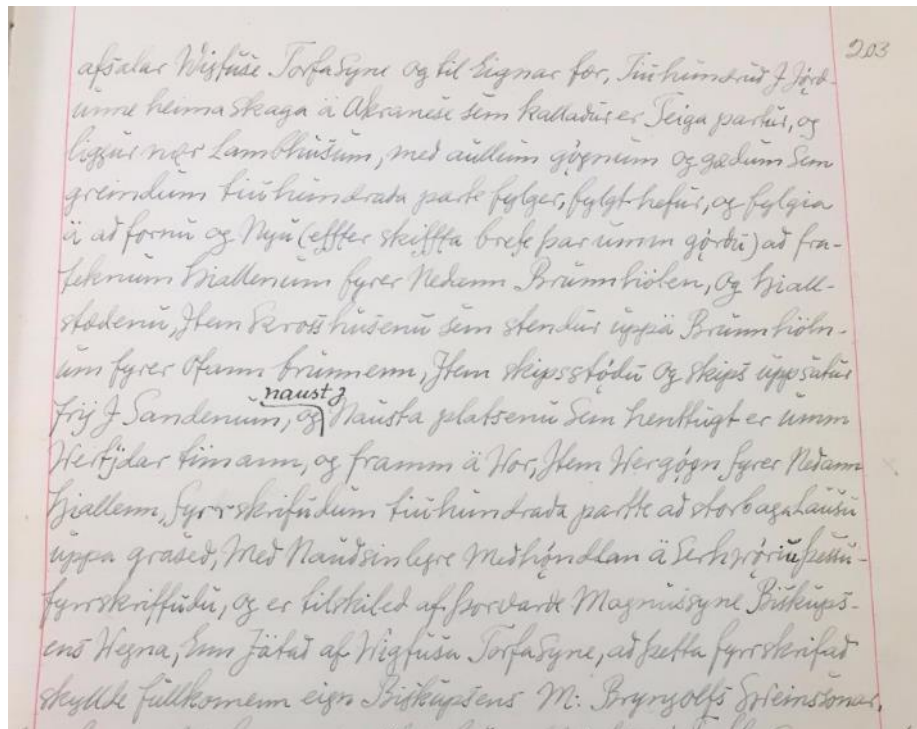 203
afsalar Wigfuse Torfasyne og til Eignar fær, Tiuhundrud J Jörd-
unne heimaskaga ä Akranese sem kalladur er Teiga partur, og
liggur nær Lambhusum, med aullum gögnum og gædum sem
greindum tiuhundrada parte fylger, fylgt hefur, og fylgia
ä ad fornu og Nyu (effter skiffta brefe þar umm gördu) ad fra-
teknum hiallenum fyrer Nedann Brunnhölen, og hiall-
stædenu, Jtem Krosshusenu sem stendur uppä Brunnhöln-
um fyrer Ofann brunnenn, Jtem skipsstödu og skips uppsatur
frij J Sandenum, og naust J Nausta platsenu sem hentugt er umm
Wertijdar timann, og framm ä Wor, Jtem Wergögn fyrer Nedann
hiallenn, fyrrskrifudum tiuhundrada partte ad storbagalausu
uppa grased, Med Naudsinlegre Medhöndlan ä Serhwöriu þessu
fyrrskriffudu, og er tilskiled af Þorvarde Magnussyne Biskups-
ens Wegna, Enn Játad af Wigfusa Torfasyne, ad þetta fyrrskrifad
skyllde fullkomenn eign Biskupsens M: Bryngolfs Sveinssonar,